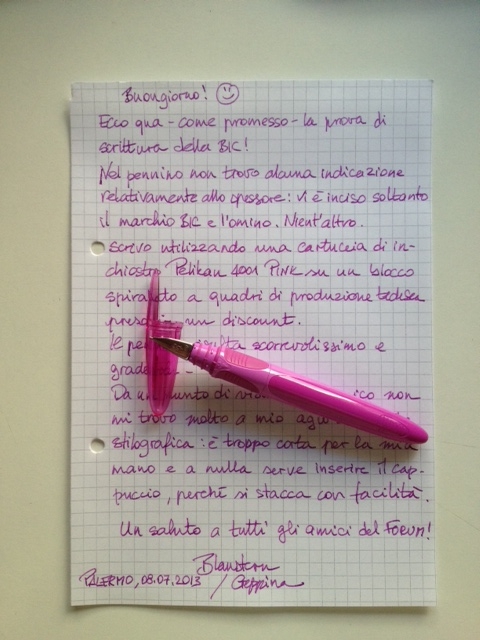 Buongiorno!
Ecco qua - come promesso - la prova di
scrittura della BIC!
Nel pennino non trovo alcuna indicazione
relativamente allo spessore: vi è inciso soltanto
il marchio BIC e l'omino. Nient'altro.
Scrivo utilizzando una cartuccia di in-
chiostro Pelikan 4001 PINK su un blocco
spiralato a quadri di produzione tedesca
un discount.
scorrevolissimo e
Da un punto di non
mi trovo molto a mio
stilografica: è troppo corta per la mia
mano e a nulla serve inserire il cap-
puccio, perché si stacca con facilità.
Un saluto a tutti gli amici del FORUM!
Blaustern
PALERMO, 08.07.2013 / Geppina